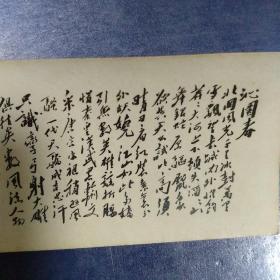 沁园春
北国风光千里冰封万里
雪飘望长城内外惟余
莽莽大河上下顿失滔滔山
舞银蛇原驰
欲与天公试比高须
晴日看红装素裹
分外妖娆江山如此多娇
引无数英雄竞折腰
惜秦皇汉武略输文
采唐宗宋祖稍逊风
骚一代天骄成吉思汗
只识弯弓射大雕
俱往矣数风流人物